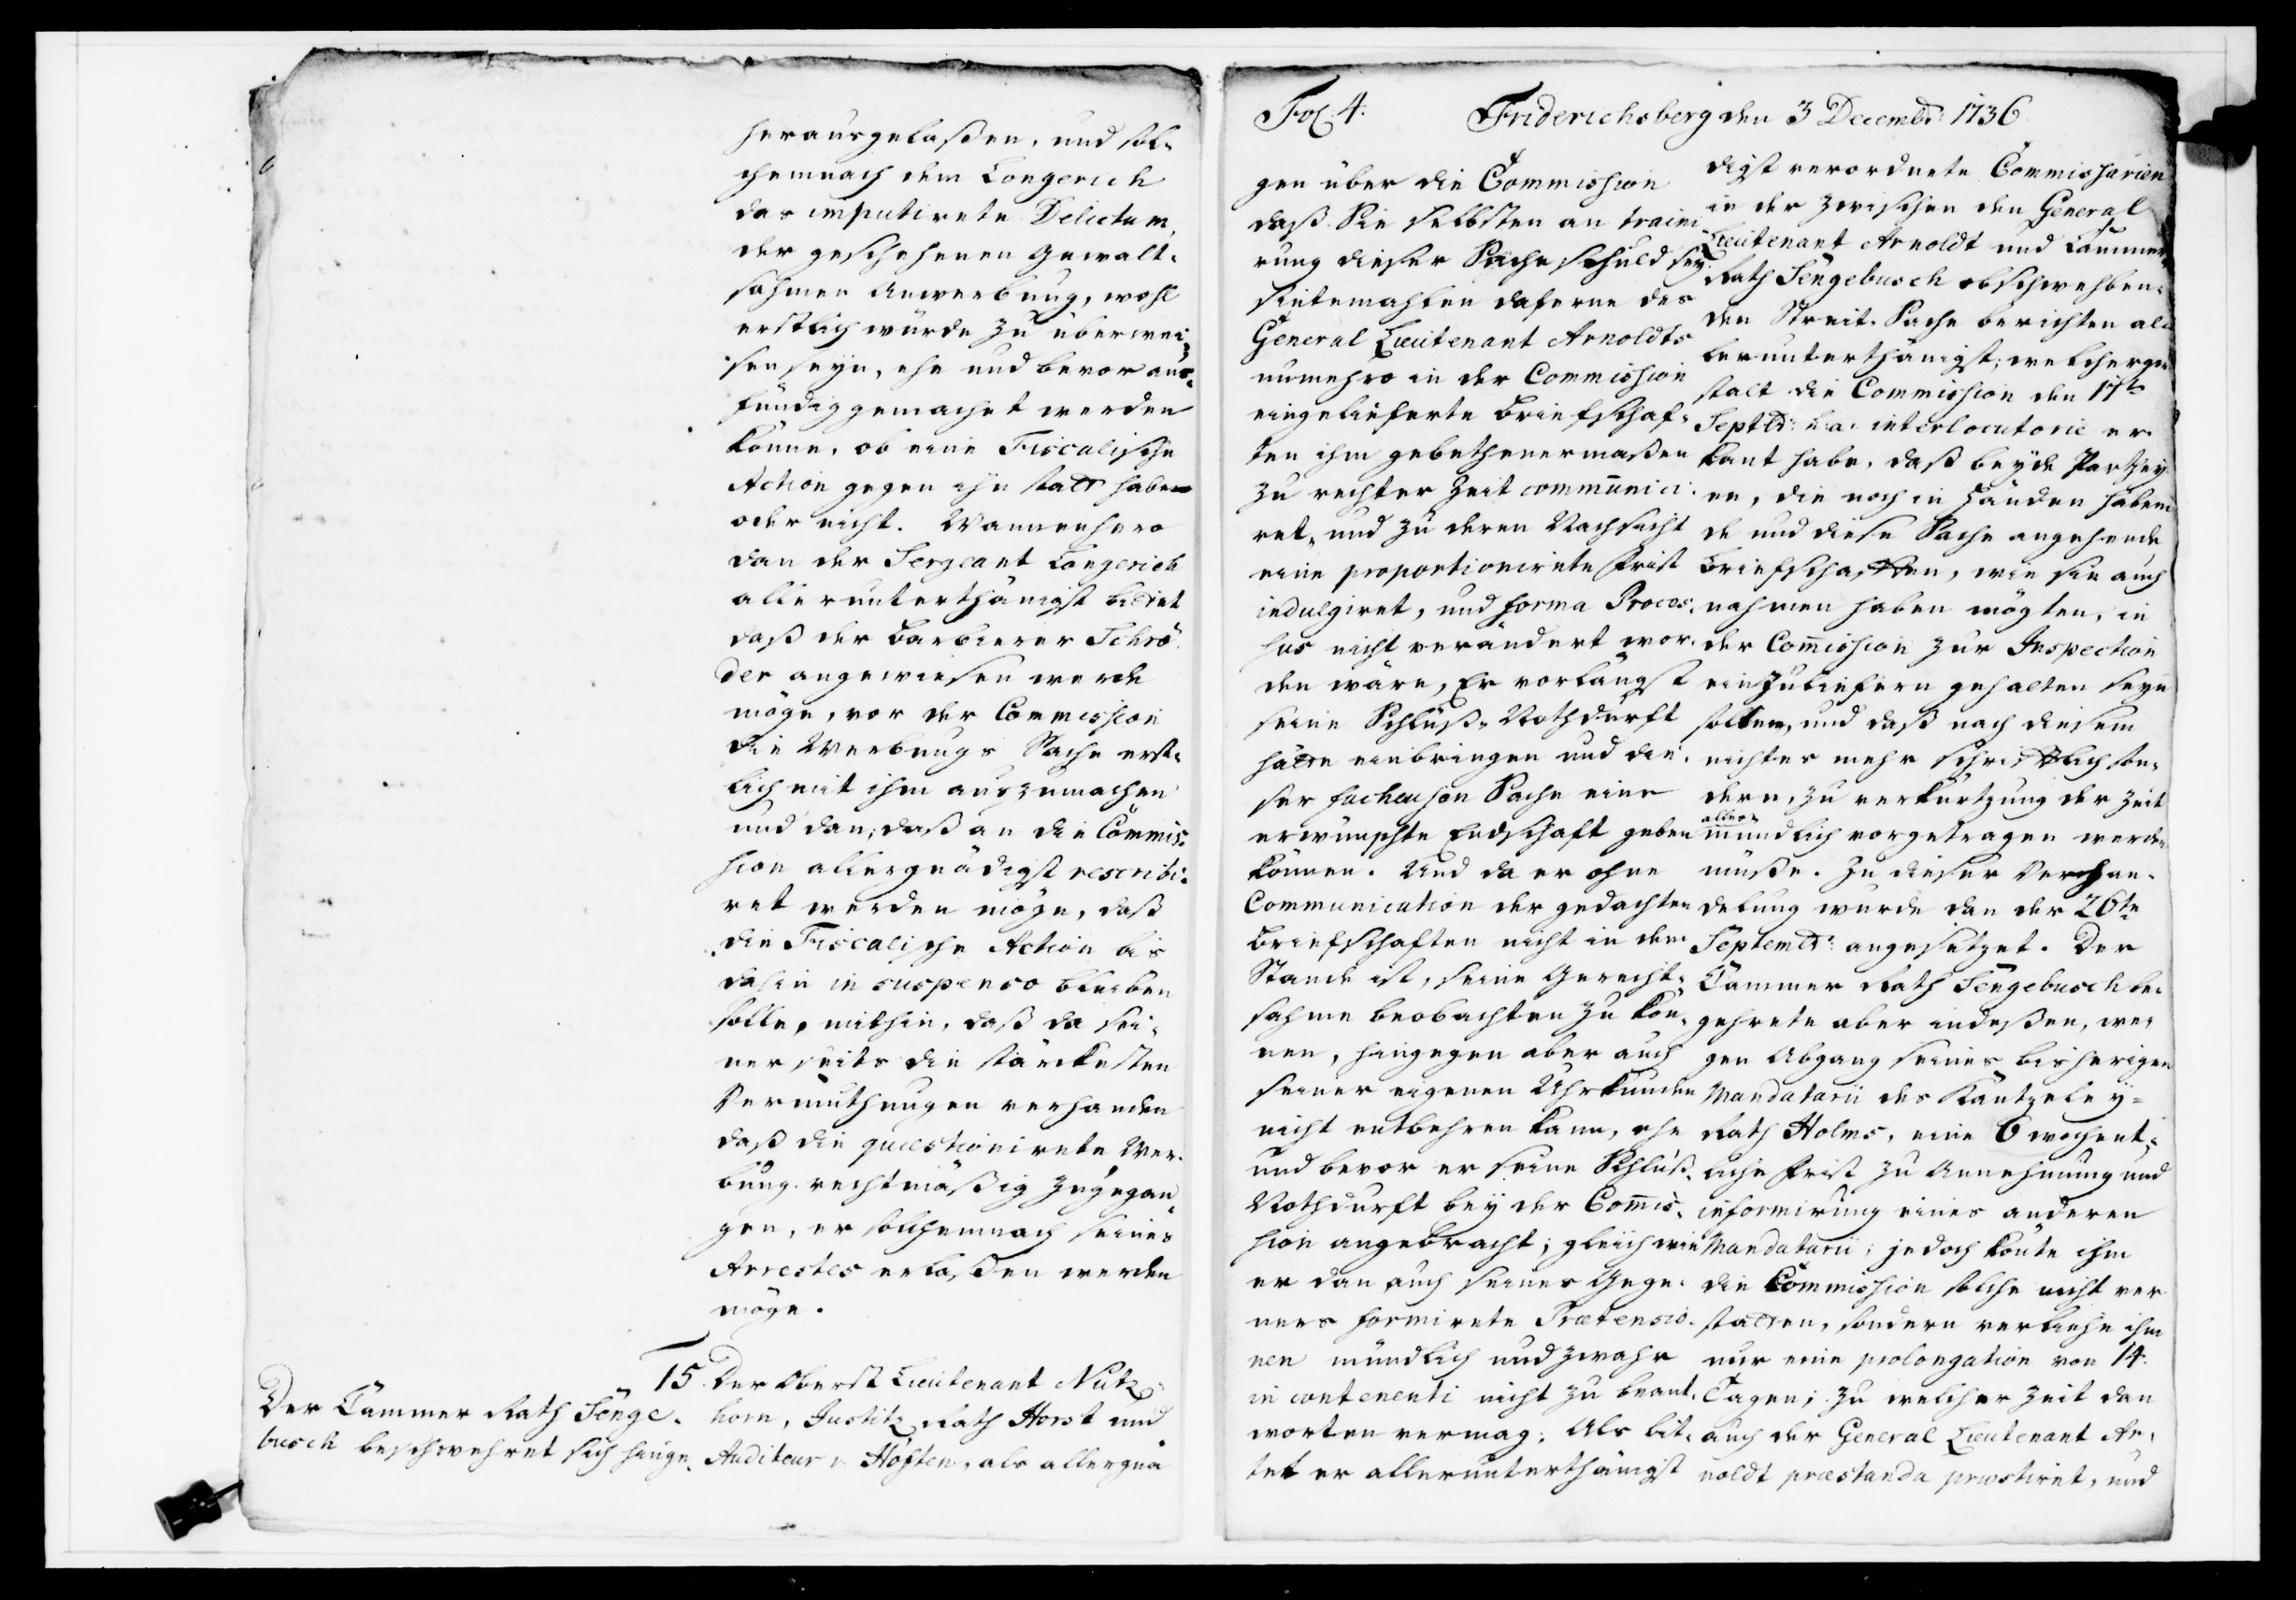 herausgelaßen, und sol-
chemnach dem Longerich
das imputirete Delictum,
der geschehenen Gewalt-
sahmen Anwerbung, wohl
erstlich würde zu überwei-
sen seyn, ehe und bevor aus-
fündig gemachet werden
könne, ob eine Fiscalische
Action gegen ihn statt haben
oder nicht. Wannenhero
dan der Sergeant Longerich
allerunterthänigst bittet
daß der Barbierer Schrö-
der angewiesen werde
möge, vor der Commission
die Werbungs Sache erst-
lich mit ihm auszumachen
und dan, daß an die Commis-
sion allergnädigst rescribi-
ret werden möge, daß
die Fiscalische Action bis
dahin in suspenso bleiben
solle, mithin, daß da sei-
ner seits die stärckesten
Vermuthungen verhanden
daß die quæstionirete Wer-
bung rechtmäßig zugegan-
gen, er solchemnach seines
Arrestes erlaßen werden
möge.
15. Der Oberst Lieutenant Nutz-
horn, Justitz Rath Horst und
Auditeur v. Höften, als allergnä
Der Cammer Rath Senge-
busch beschwehret sich hinge-
Fol: 4. Friderichsberg den 3 Decembr: 1736.
gen über die Commission
daß Sie selbsten an traini-
rung dieser Sache schuld sey
sintemahlen daferne des
General Lieutenant Arnoldts
numehro in der Commission
eingelieferte Briefschaf-
ten ihm gebethenermaßen
zu rechter Zeit communici-
ret, und zu deren Nachsicht
eine proportionirete Frist
indulgiret, und forma Proces-
sus nicht verändert wor-
den wäre, Er vorlängst
seine Schluß-Nothdurft
hätte einbringen und die-
ser facheusen Sache eine
erwünschte Endschaft geben
können. Und da er ohne
Communication der gedachten
Briefschaften nicht in dem
Stande ist, seine Gerecht-
sahme beobachten zu kön-
nen, hingegen aber auch
seiner eigenen Uhrkunden
nicht entbehren kann, ehe
und bevor er seine Schluß-
Nothdurft bey der Commis-
sion angebracht; gleich wie
er dan auch seines Gege-
ners formirete Prætensio-
nen mündlich und zwahr
in contenenti nicht zu beant-
worten vermag; Als bit-
tet er allerunterthänigst
digst verordnete Commissarien
in der zwischen den General
Lieutenant Arnoldt und Cammer
Rath Sengebusch obschwehben-
den Streit-Sache berichten al-
lerunterthänigst; welcherge-
stalt die Commission den 17te
Septbr: h: a: interlocutorie er-
kant habe, daß beyde Parthey-
en, die noch in Händen haben-
de und diese Sache angehende
Briefschaften, wie sie auch
nahmen haben mögten, in
der Commission zur Inspection
einzuliefern gehalten seyn
solten, und daß nach diesem
nichtes mehr schriftlich son-
dern, zu verkürtzung der Zeit
alles
mündlich vorgetragen werden
müße. Zu dieser Verhan-
delung wurde dan der 26te
Septembr: angesetzet. Der
Cammer Rath Sengebusch be-
gehrete aber indeßen, we-
gen Abgang seines bisherigen
Mandatarii des Kantzeley-
Rath Holms, eine 6 wochent-
liche Frist zu Annehmung und
informirung eines anderen
Mandatarii; jedoch konte ihm
die Commission solche nicht ver
statten, sondern verliehe ihm
nur eine prolongation von 14.
Tagen; zu welcher Zeit dan
auch der General Lieutenant Ar-
noldt præstanda præstiret, und